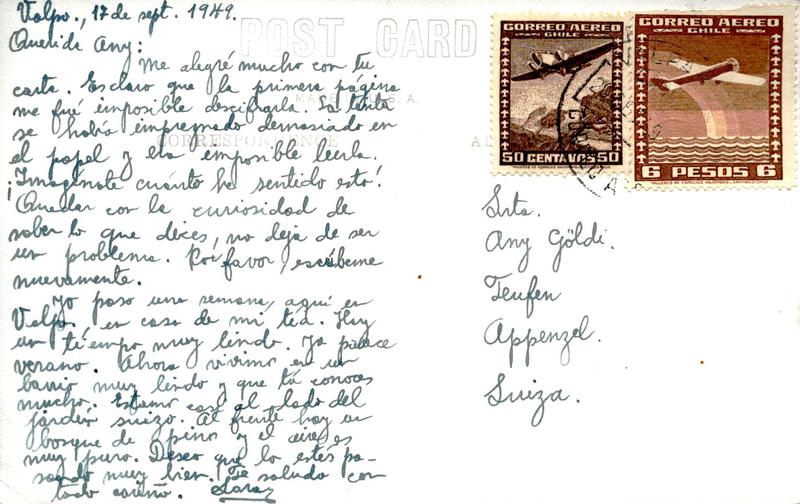 Valpo., 17 de sept. 1949.
Querida Any:
Me alegré mucho con tu
carta. Es claro que la primera página
me fué imposible descifrarla. La tinta
se había impregnado demasiado en
el papel y era imposible leerla.
¡Imagínate cuánto he sentido esto!
Quedar con la curiosidad de
saber lo que dices, no deja de ser
un problema. Por favor, escríbeme
nuevamente.
Yo paso una semana, aquí en
Valpo. en casa de mi tía. Hay
un tiempo muy lindo. Ya parece
verano. Ahora vivimos en un
barrio muy lindo y que tú conoces
mucho. Estamos casi al lado del
jardín suizo. Al frente hay un
bosque de pinos y el aire es
muy puro. Deseo que lo estés pa-
sando muy bien. Te saluda con
todo cariño.
POST CARD
MADE IN U.S.A.
CORRESPONDENCE
CORREO AEREO
CHILE
50 CENTAVOS 50
CORREO AEREO
CHILE
6 PESOS 6
Srta.
Any Göldi.
Teufen
Appenzel.
Suiza.